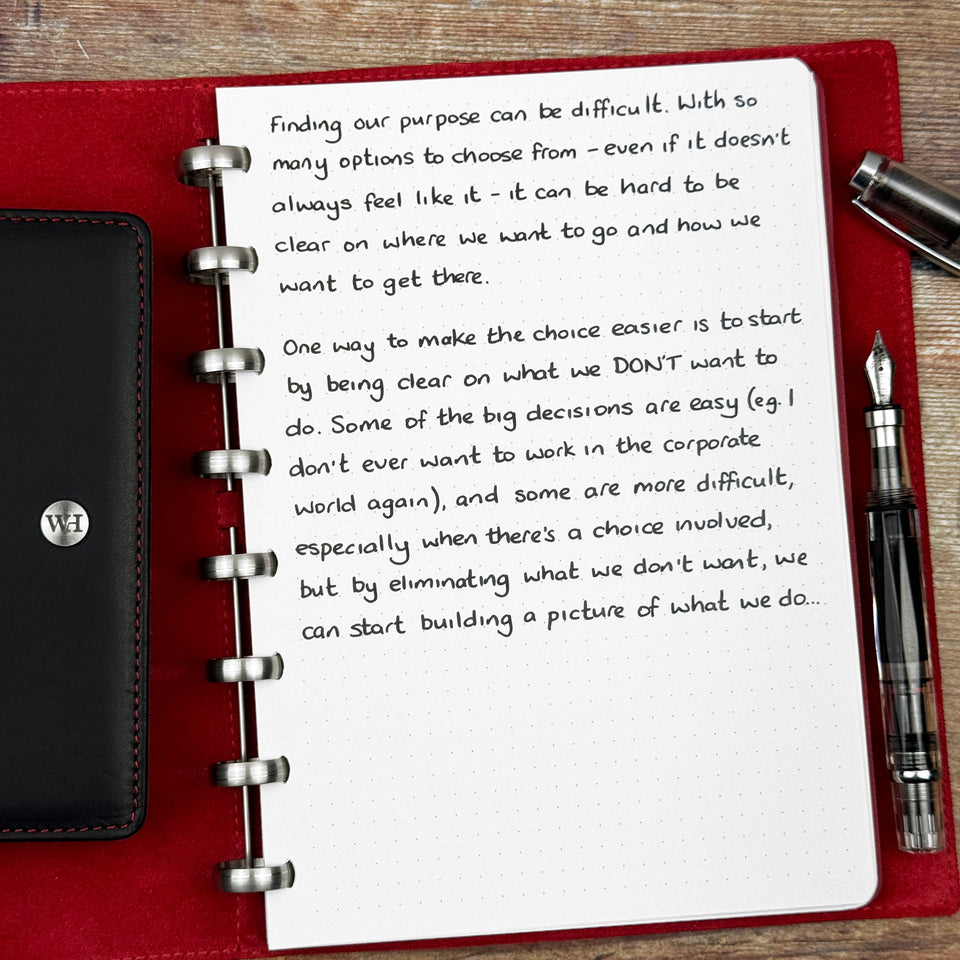 Finding our purpose can be difficult. With so
many options to choose from - even if it doesn't
always feel like it - it can be hard to be
clear on where we want to go and how we
want to get there.
One way to make the choice easier is to start
by being clear on what we DON'T want to
do. Some of the big decisions are easy (eg. I
don't ever want to work in the corporate
world again), and some are more difficult,
especially when there's a choice involved,
but by eliminating what we don't want, we
can start building a picture of what we do...
WH